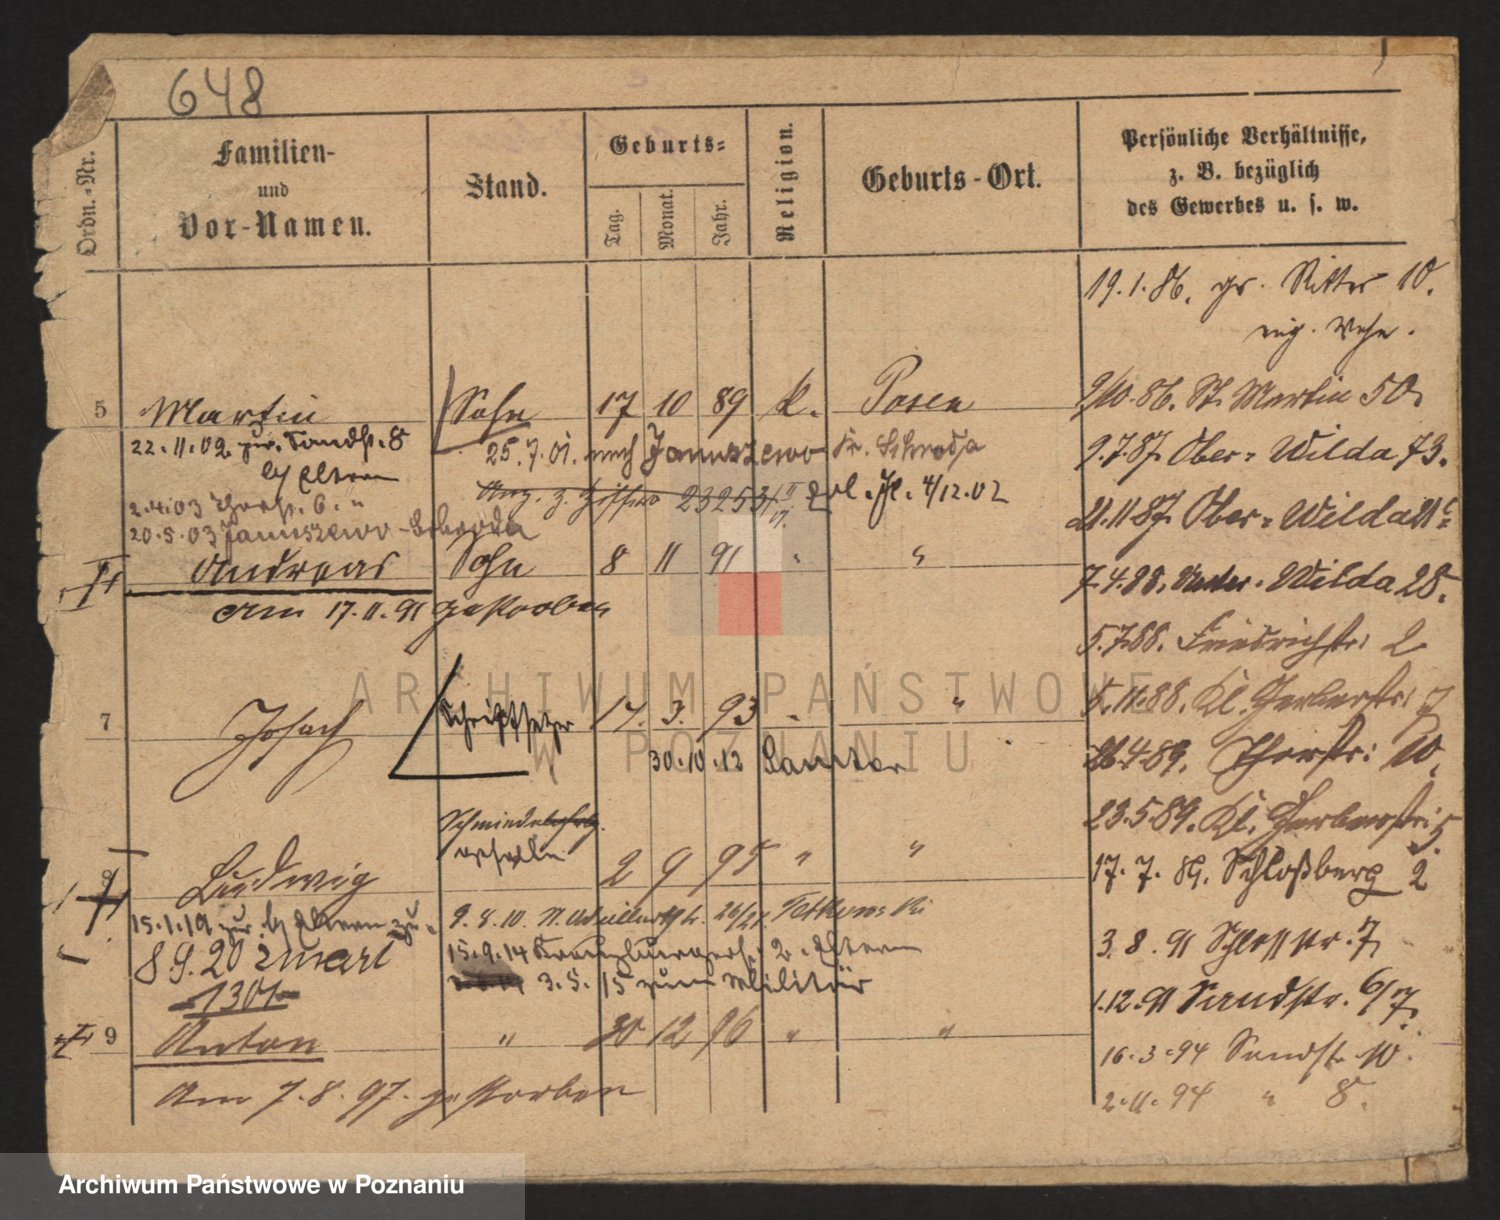 648
Ordn.-Nr.
Familien-
und
Vor-Namen.
Stand.
Geburts-
Tag.
Monat.
Jahr.
Religion.
Geburts-Ort.
Persönliche Verhältnisse,
z. B. bezüglich
des Gewerbes u. s. w.
19.1.86. gr. Ritter 10.
5 Martin Sohn 17 10 89 k. Posen
22.11.02 zur. Sandst. 8
b/ Eltern
25.7.01. nach Januszewo Kr. Schroda
2.4.03 6. "
23253 4/12.02
20.5.03 Januszewo-Schroda
Andreas Sohn 8 11 91 " "
am 17.11.91 gestorben
7 Josef Schriftsetzer 17. 3. 93 " "
30.10.12 Samter
Schmiedelehrlg.
geselle
8 Ludwig 2 9 95 " "
15.1.19 zur. b/ Eltern zu.
9.8.10. 26/21.
89.20 2 mal
15.9.14 Kreuzburgerst. 2. Eltern
1301
3.5.15 zum Militär
9 Anton " 30 12 96 " "
Am 7.8.97. gestorben
2/10.86. St. Martin 50.
9.7.87. Ober-Wilda 73.
21.11.87. Ober-Wilda 21
7.4.88. Unter-Wilda 28.
5.7.88. Friedrichstr. 2
5.11.88. Kl. Gerberstr. 7
26.4.89. Thorstr. 10.
23.5.89. Kl. Gerberstr. 5
17.7.89. Schloßberg 2
3.8.91 Schlosstr. 7
1.12.91 Sandstr. 6/7.
16.3.94 Sandstr. 10.
2.11.94 " 8.
ARCHIWUM PAŃSTWOWE
W POZNANIU
Archiwum Państwowe w Poznaniu